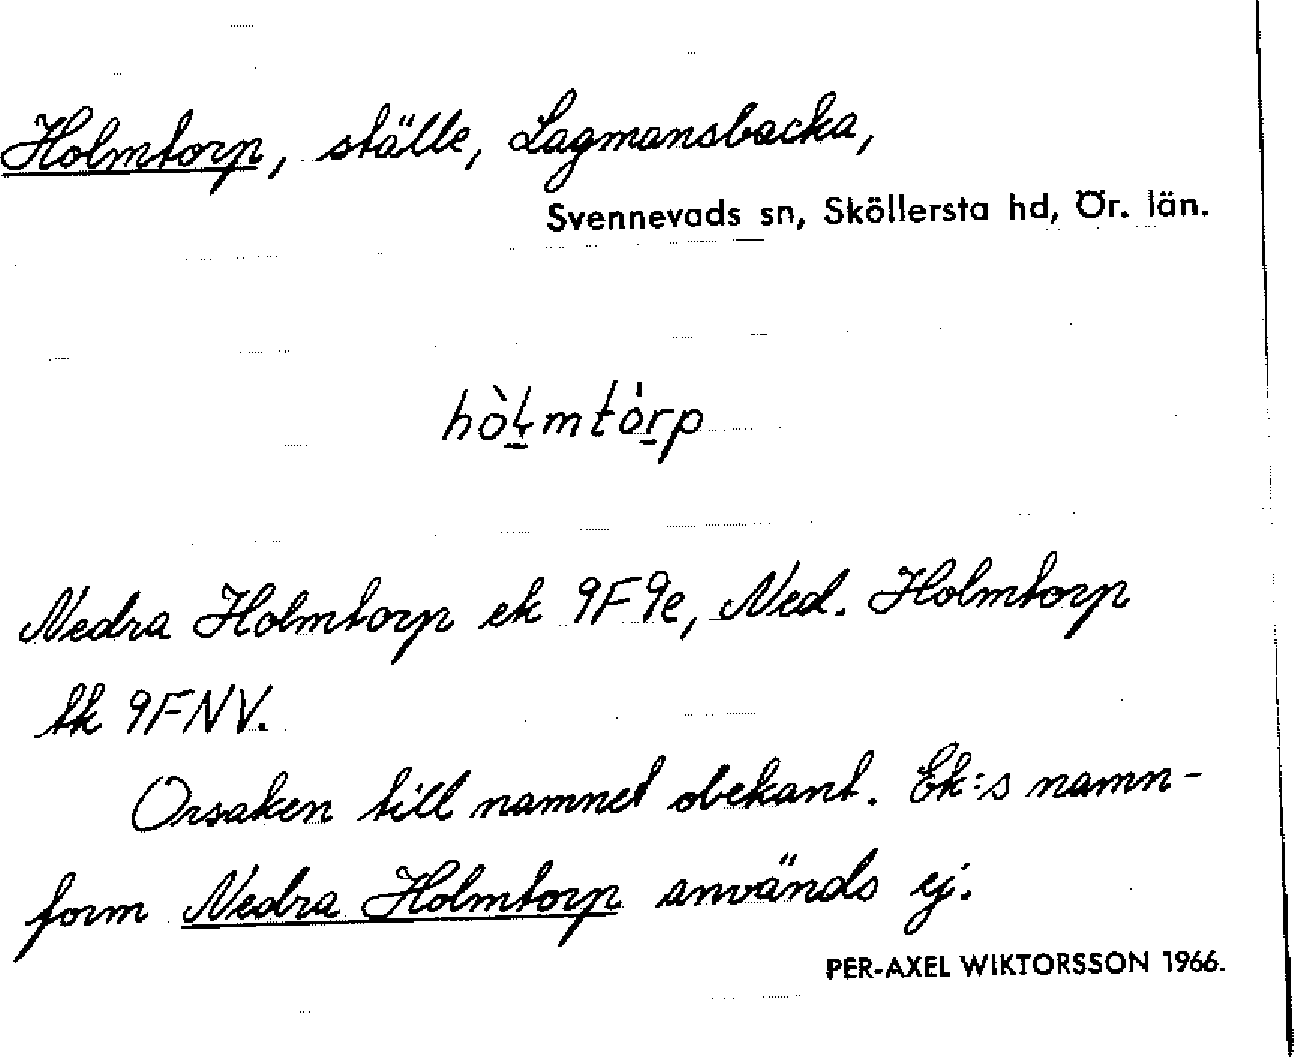 Holmtorp, ställe, Lagmansbacka,
Svennevads sn, Sköllersta hd, Ör. län.
hòl̥mtórp
Nedra Holmtorp ek 9F9e, Ned. Holmtorp
tk 9FNV.
Orsaken till namnet obekant. Ek:s namn-
form Nedra Holmtorp används ej.
PER-AXEL WIKTORSSON 1966.